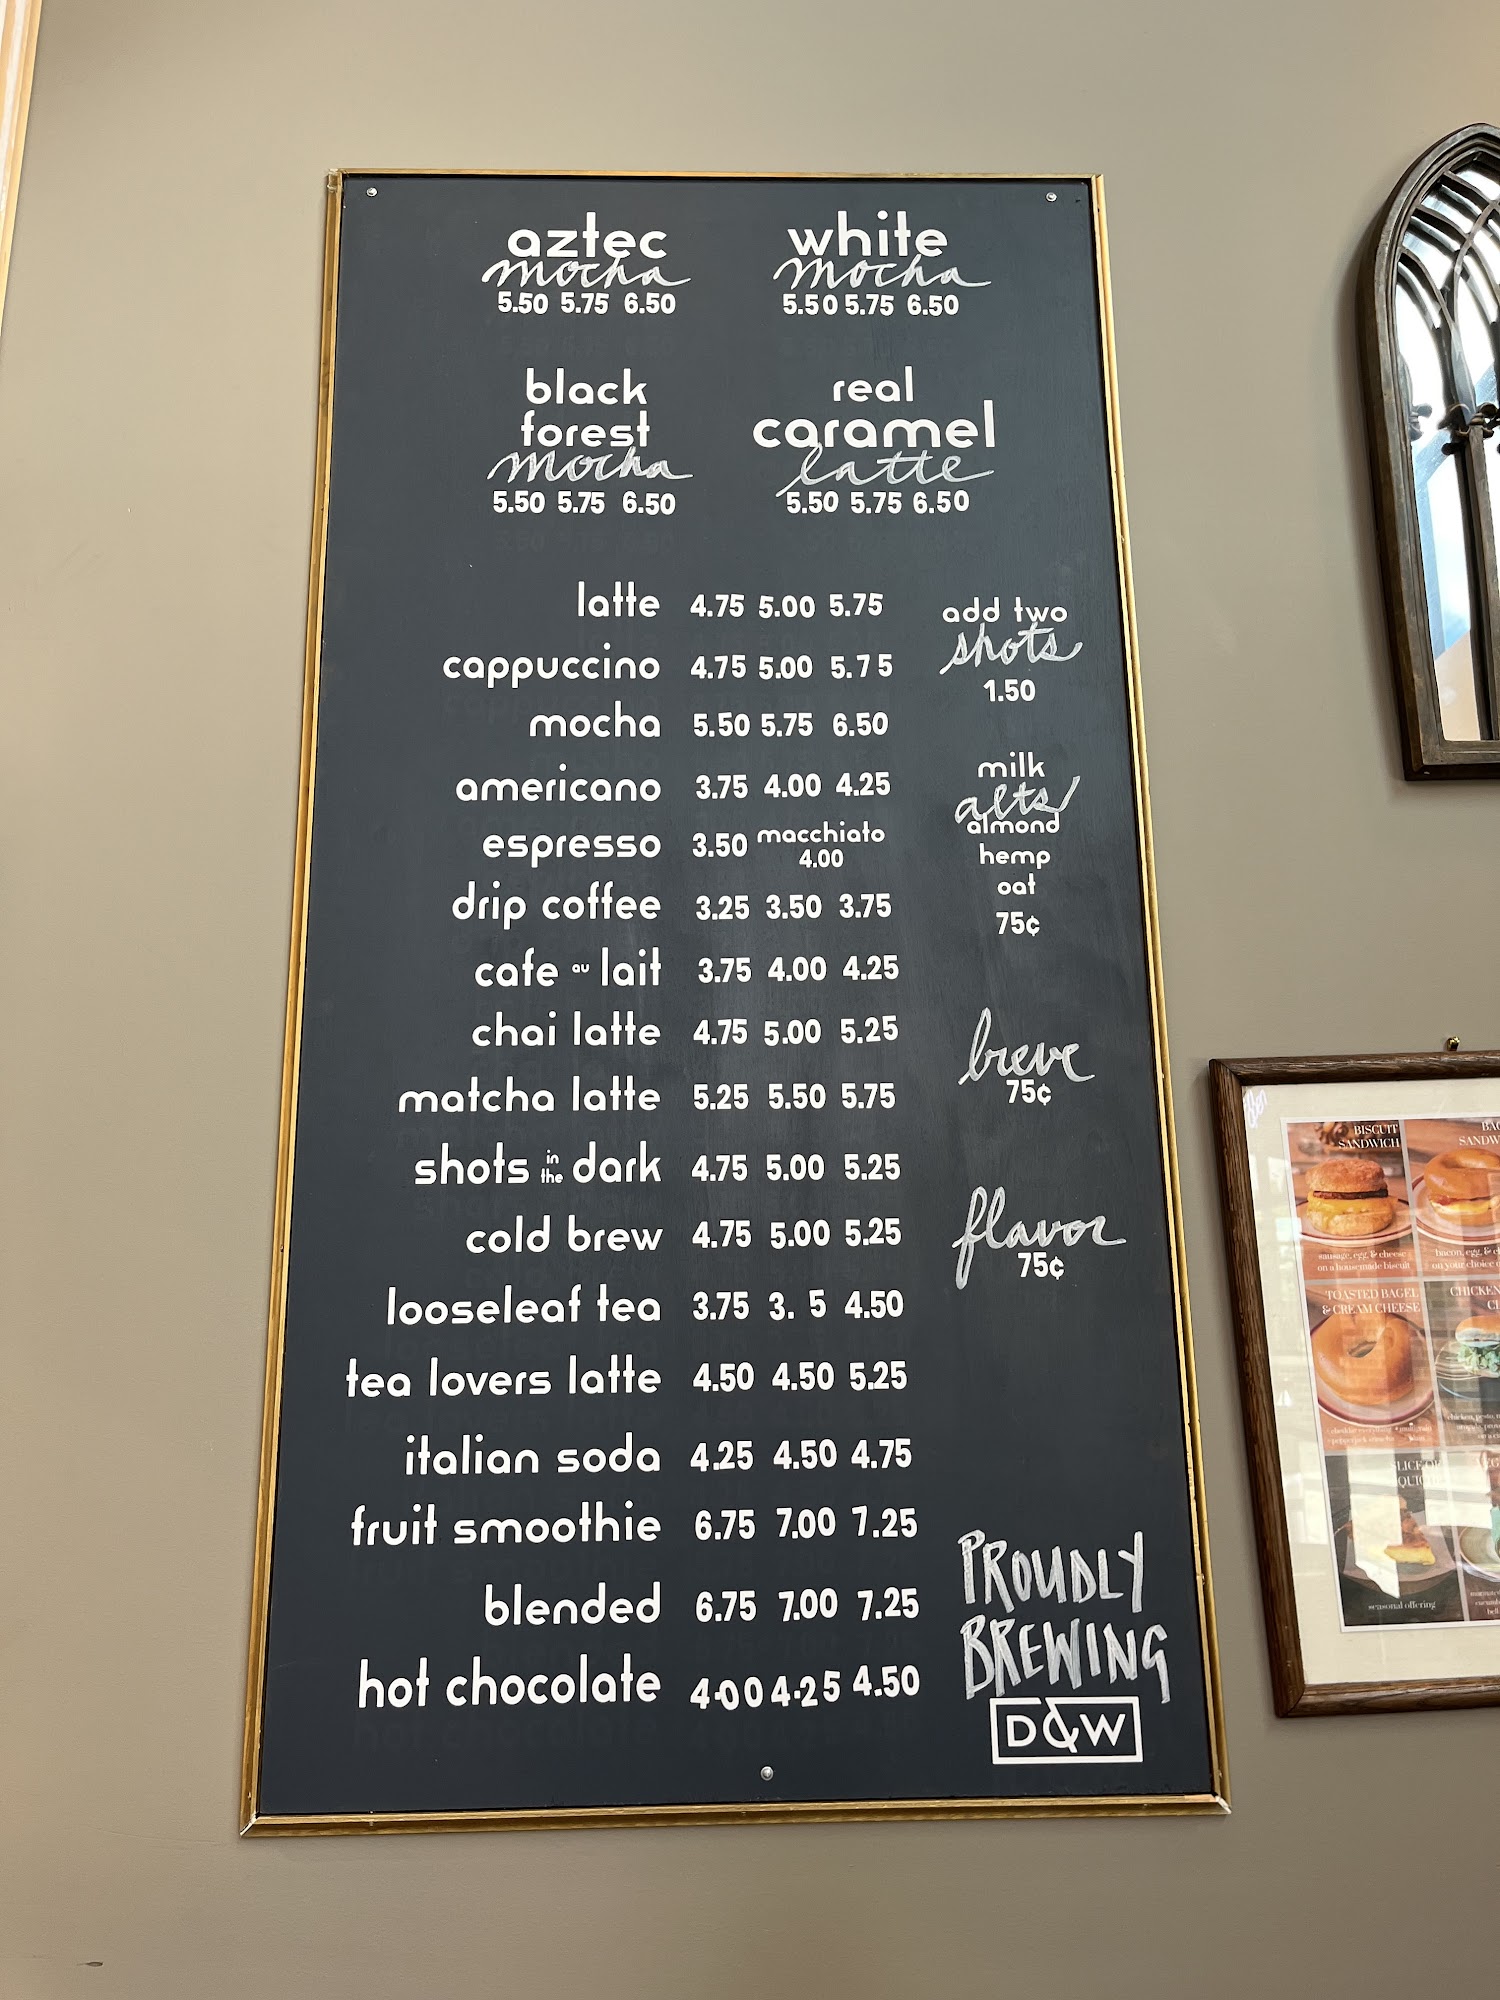 aztec
mocha
5.50 5.75 6.50
white
mocha
5.50 5.75 6.50
black
forest
mocha
5.50 5.75 6.50
real
caramel
latte
5.50 5.75 6.50
latte 4.75 5.00 5.75
cappuccino 4.75 5.00 5.75
mocha 5.50 5.75 6.50
americano 3.75 4.00 4.25
espresso 3.50 macchiato
4.00
drip coffee 3.25 3.50 3.75
cafe au lait 3.75 4.00 4.25
chai latte 4.75 5.00 5.25
matcha latte 5.25 5.50 5.75
shots in the dark 4.75 5.00 5.25
cold brew 4.75 5.00 5.25
looseleaf tea 3.75 3. 5 4.50
tea lovers latte 4.50 4.50 5.25
italian soda 4.25 4.50 4.75
fruit smoothie 6.75 7.00 7.25
blended 6.75 7.00 7.25
hot chocolate 4.00 4.25 4.50
add two
shots
1.50
milk
alts
almond
hemp
oat
75¢
breve
75¢
flavor
75¢
PROUDLY
BREWING
D&W
BISCUIT
SANDWICH
sausage, egg, & cheese
on a housemade biscuit
bacon, egg, &
on your choice
TOASTED BAGEL
& CREAM CHEESE
CHICKEN
SLICE OF
QUICHE
seasonal offering